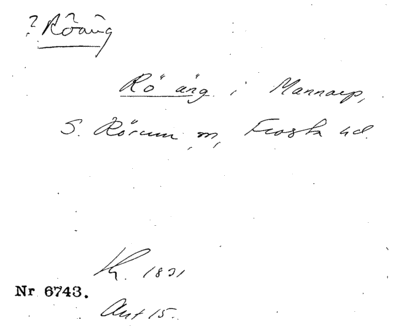 ? Röäng
Rö äng i Mannarp,
S. Rörum, m, Frosta hd.
K. 1821
Nr 6743.
Avt 15.